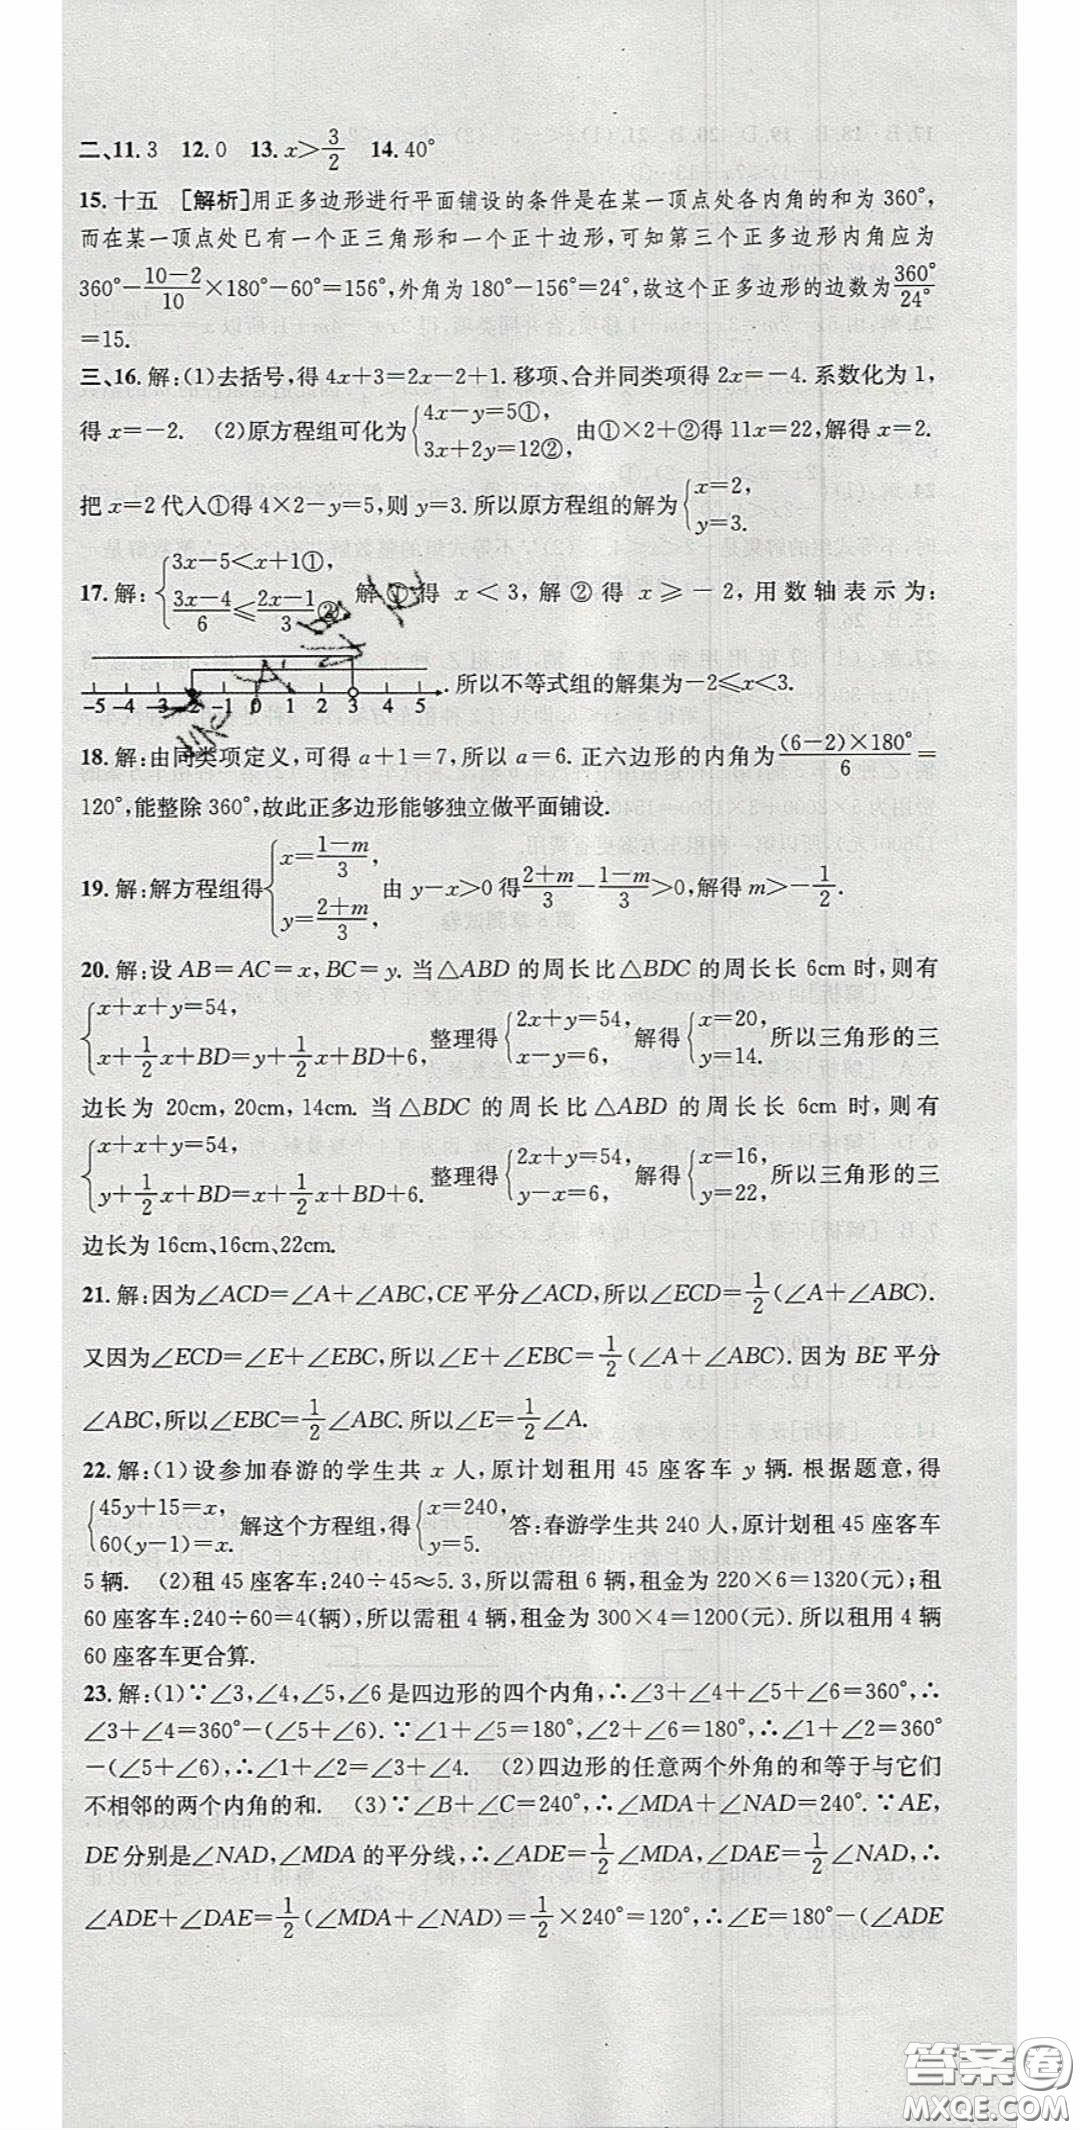 二、11.3 12.0 13.x>3/2 14.40°
15.十五 [解析]用正多边形进行平面铺设的条件是在某一顶点处各内角的和为360°,
而在某一顶点处已有一个正三角形和一个正十边形,可知第三个正多边形内角应为
360°-(10-2)/10×180°-60°=156°,外角为180°-156°=24°,故这个正多边形的边数为360°/24°
=15.
三、16.解:(1)去括号,得4x+3=2x-2+1.移项、合并同类项得2x=-4.系数化为1,
得x=-2. (2)原方程组可化为{4x-y=5①, 3x+2y=12②, 由①×2+②得11x=22,解得x=2.
把x=2代人①得4×2-y=5,则y=3.所以原方程组的解为{x=2, y=3.
17.解:{3x-5<x+1①, (3x-4)/6≤(2x-1)/3②, 解①得x<3,解②得x≥-2,用数轴表示为:
-5 -4 -3 -2 -1 0 1 2 3 4 5 .所以不等式组的解集为-2≤x<3.
18.解:由同类项定义,可得a+1=7,所以a=6.正六边形的内角为(6-2)×180°/6=
120°,能整除360°,故此正多边形能够独立做平面铺设.
19.解:解方程组得{x=(1-m)/3, y=(2+m)/3, 由y-x>0得(2+m)/3-(1-m)/3>0,解得m>-1/2.
20.解:设AB=AC=x,BC=y.当△ABD的周长比△BDC的周长长6cm时,则有
{x+x+y=54, x+1/2x+BD=y+1/2x+BD+6, 整理得{2x+y=54, x-y=6, 解得{x=20, y=14. 所以三角形的三
边长为20cm,20cm,14cm.当△BDC的周长比△ABD的周长长6cm时,则有
{x+x+y=54, y+1/2x+BD=x+1/2x+BD+6. 整理得{2x+y=54, y-x=6, 解得{x=16, y=22, 所以三角形的三
边长为16cm、16cm、22cm.
21.解:因为∠ACD=∠A+∠ABC,CE平分∠ACD,所以∠ECD=1/2(∠A+∠ABC).
又因为∠ECD=∠E+∠EBC,所以∠E+∠EBC=1/2(∠A+∠ABC).因为BE平分
∠ABC,所以∠EBC=1/2∠ABC.所以∠E=1/2∠A.
22.解:(1)设参加春游的学生共x人,原计划租用45座客车y辆.根据题意,得
{45y+15=x, 60(y-1)=x. 解这个方程组,得{x=240, y=5. 答:春游学生共240人,原计划租45座客车
5辆. (2)租45座客车:240÷45≈5.3,所以需租6辆,租金为220×6=1320(元);租
60座客车:240÷60=4(辆),所以需租4辆,租金为300×4=1200(元).所以租用4辆
60座客车更合算.
23.解:(1)∵∠3,∠4,∠5,∠6是四边形的四个内角,∴∠3+∠4+∠5+∠6=360°,∴
∠3+∠4=360°-(∠5+∠6).∵∠1+∠5=180°,∠2+∠6=180°,∴∠1+∠2=360°
-(∠5+∠6),∴∠1+∠2=∠3+∠4. (2)四边形的任意两个外角的和等于与它们
不相邻的两个内角的和. (3)∵∠B+∠C=240°,∴∠MDA+∠NAD=240°.∵AE,
DE分别是∠NAD,∠MDA的平分线,∴∠ADE=1/2∠MDA,∠DAE=1/2∠NAD,∴
∠ADE+∠DAE=1/2(∠MDA+∠NAD)=1/2×240°=120°,∴∠E=180°-(∠ADE
答案圈
MXQE.COM